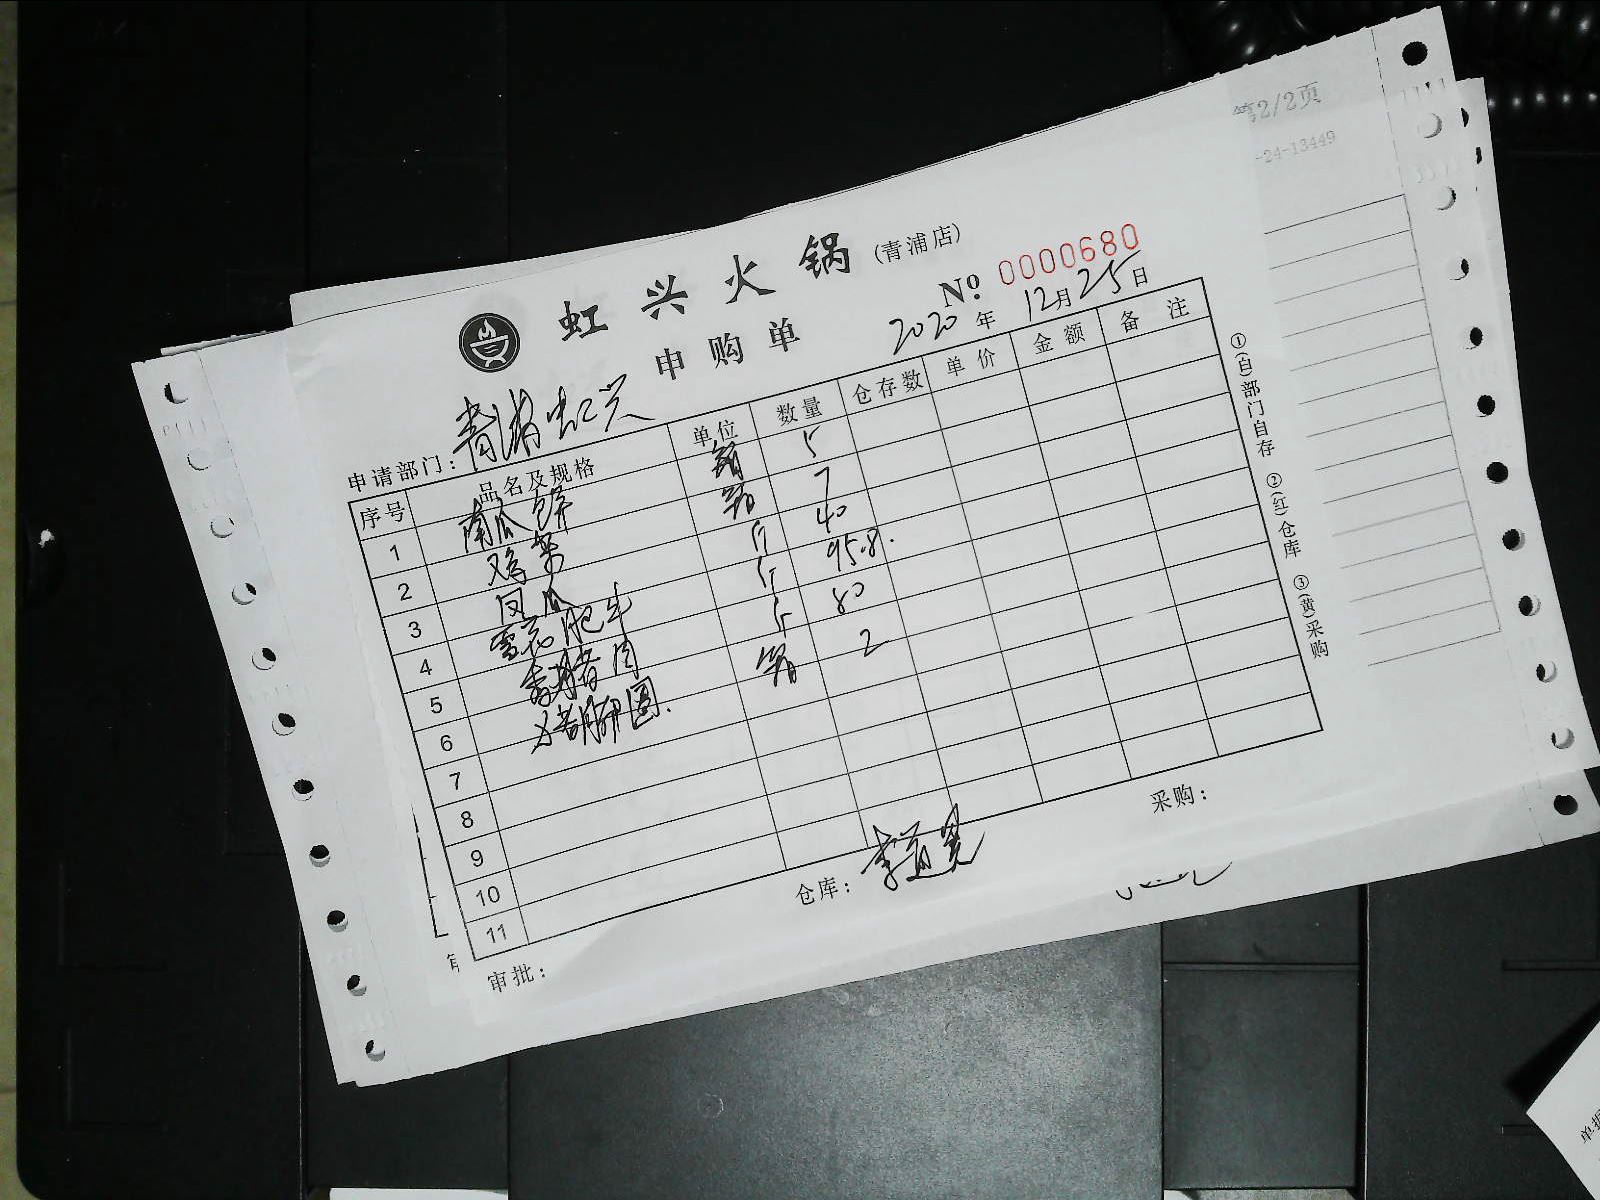 第2/2页
-24-13449
虹兴火锅(青浦店)
申购单
№ 0000680
2020年12月25日
申请部门：青浦虹兴
序号 品名及规格 单位 数量 仓存数 单价 金额 备注
1 南瓜饼 箱 5
2 鸡架 箱 7
3 凤爪 斤 40
4 雪花肥牛 斤 95.8.
5 斤 80
6 箱 2
7
8
9
10
11
①(自)部门自存 ②(红)仓库 ③(黄)采购
审批： 仓库： 采购：
单据